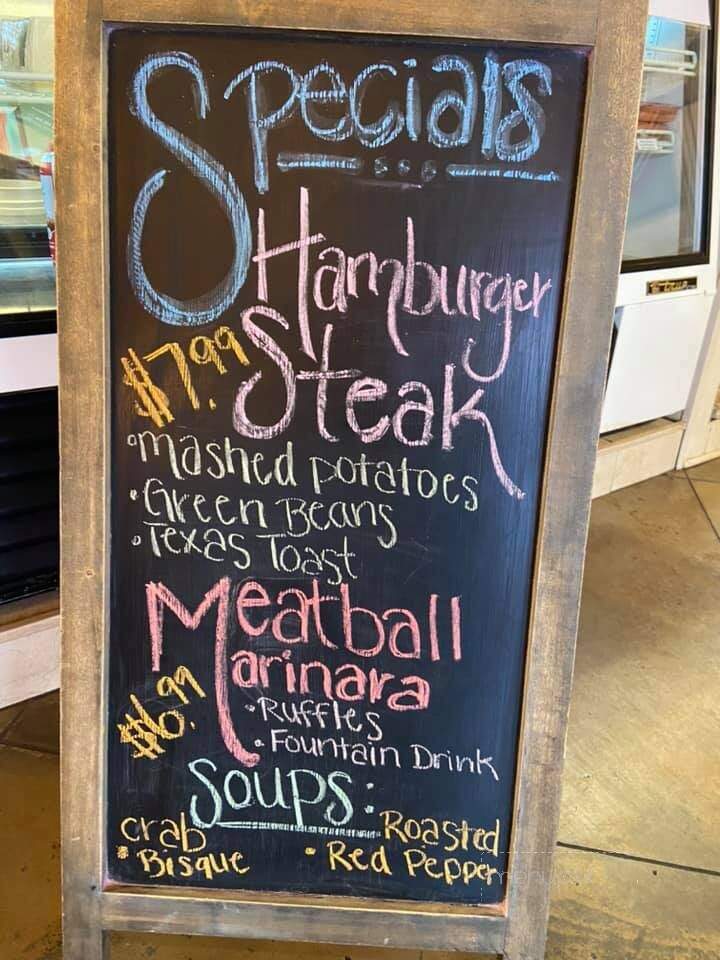 Specials
Hamburger
$7.99 Steak
• mashed potatoes
• Green Beans
• Texas Toast
Meatball
Marinara
$6.99
• Ruffles
• Fountain Drink
Soups:
• crab Bisque
• Roasted Red Pepper